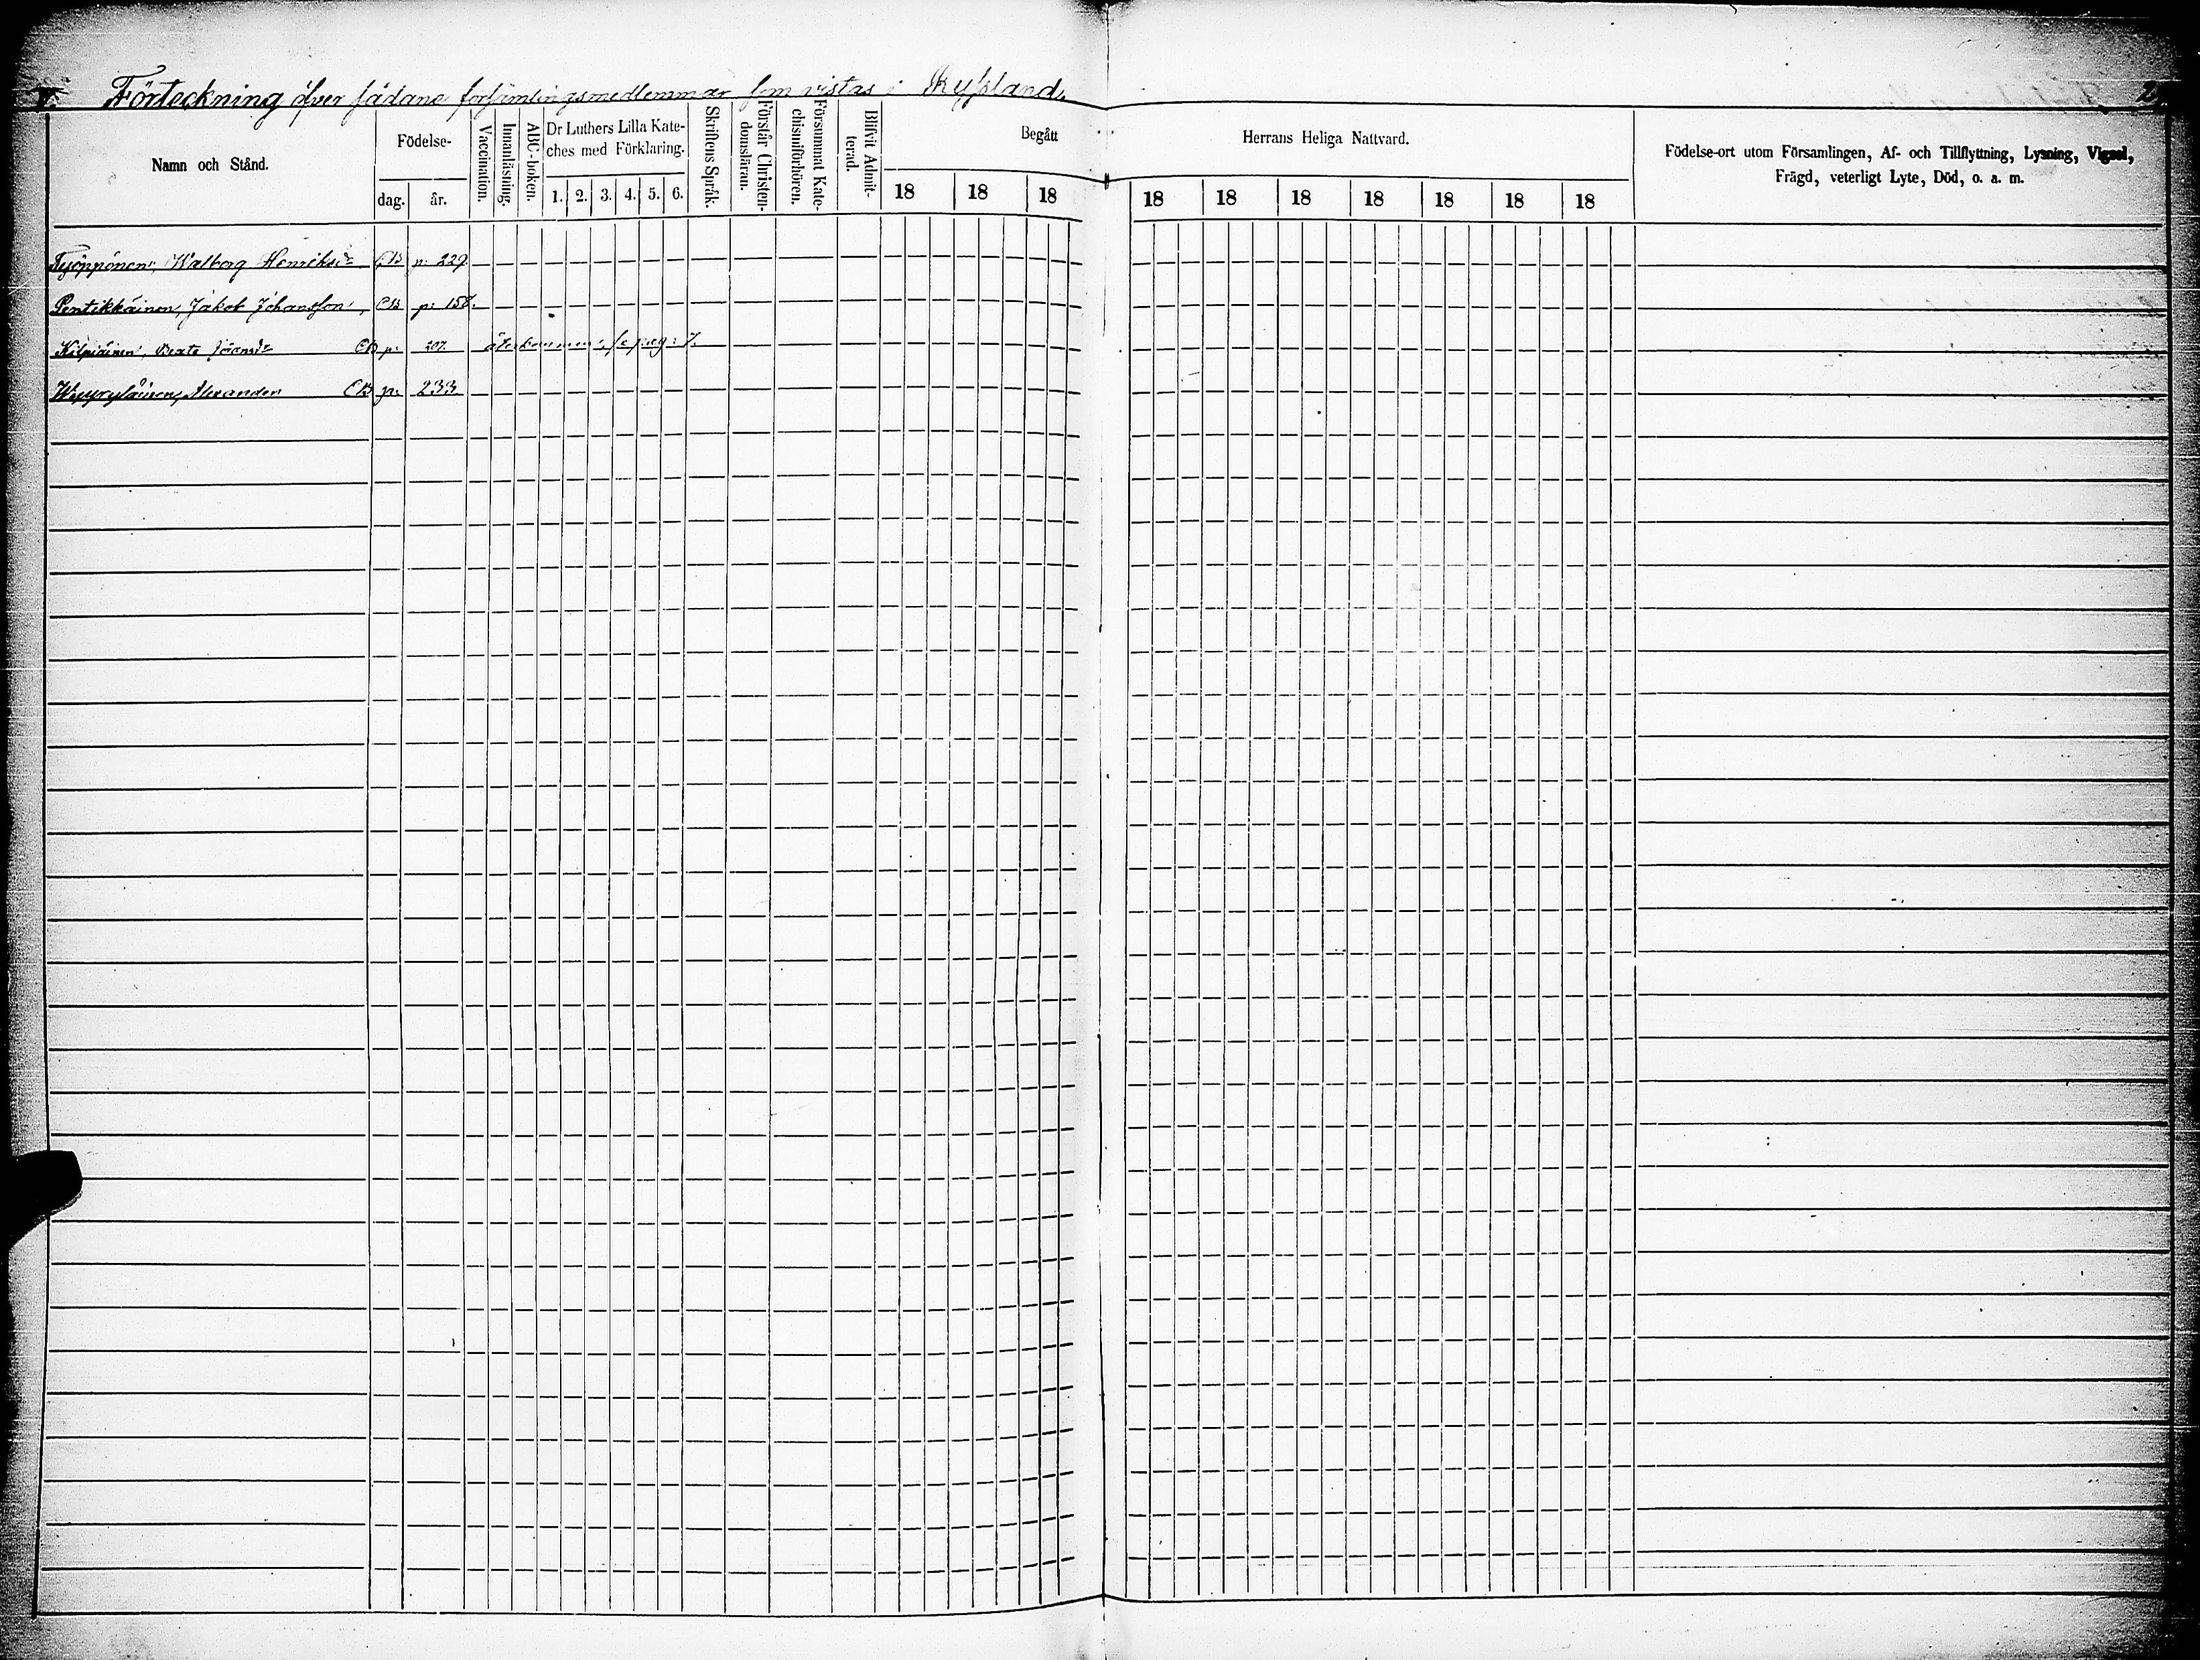 Förteckning öfver sådane församlingsmedlemmar som vistas i Ryssland.
Namn och Stånd.
Födelse-
dag.
år.
Vaccination.
Innanläsning.
ABC-boken.
Dr Luthers Lilla Kate-
ches med Förklaring.
1. 2. 3. 4. 5. 6.
Skriftens Språk.
Förstår Christen-
domsläran.
Försummat Kate-
chismiförhören.
Blifvit Admit-
terad.
Begått
Herrans Heliga Nattvard.
18 18 18 18 18 18 18 18 18 18
Födelse-ort utom Församlingen, Af- och Tillflyttning, Lysning, Vigsel,
Frägd, veterligt Lyte, Död, o. a. m.
Walborg Henriksdr CB p: 229.
Pentikkäinen, Jakob Johansson, CB p: 158.
Kilpiäinen, Beata CB p: 207. återkommen, se pag: 7.
Alexander CB p: 233.